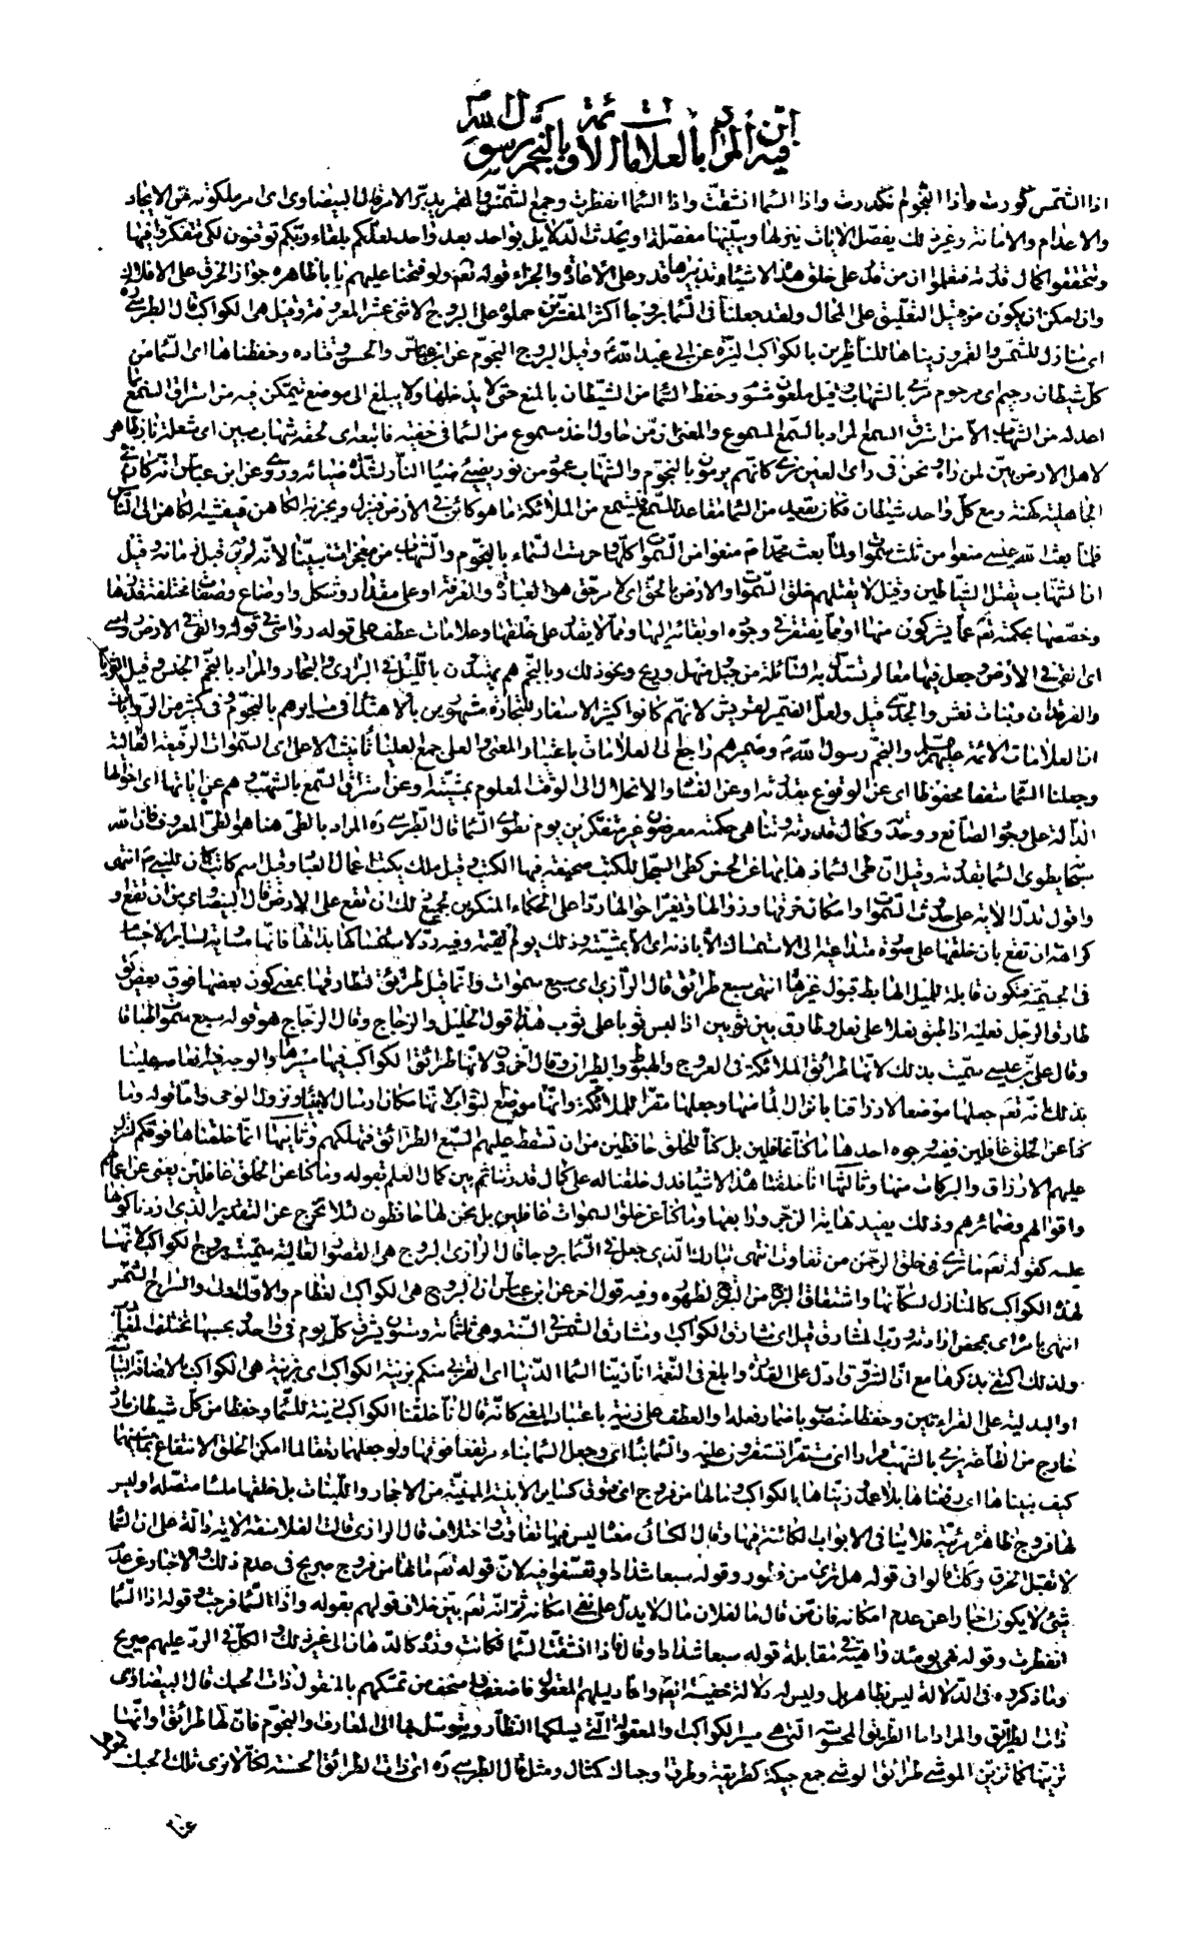 فيه ان المراد بالعلامات الائمة وبالنجم رسول الله
اذا الشمس كورت واذا النجوم انكدرت واذا السماء انشقت واذا السماء انفطرت وجمع الشمس والقمر يدبر الامر قال البيضاوى اى امر ملكوته من الايجاد
والاعدام والاماتة وغير ذلك يفصل الايات ينزلها ويبينها مفصلة او يحدث الدلايل واحد بعد واحد لعلكم بلقاء ربكم توقنون لكى تتفكروا فيها
وتتحققوا كمال قدرته فتعلموا ان من قدر على خلق هذه الاشياء وتدبيرها قدر على الاعادة والجزاء قوله تعم ولو فتحنا عليهم بابا ظاهره جواز الخرق على الافلاك
وان امكن ان يكون من قبيل التعليق على المحال ولقد جعلنا فى السماء بروجا اكثر المفسرين حملوه على البروج الاثنى عشر المعروفة وقيل هى الكواكب قال الطبرسى
اى منازل للشمس والقمر وزيناها للناظرين بالكواكب النيرة عن ابى عبد الله وقيل البروج النجوم عن ابن عباس والحسن وقتاده وحفظناها اى السماء من
كل شيطان رجيم اى مرجوم مرمى بالشهاب وقيل ملعون مشوم وحفظ السماء من الشيطان بالمنع حتى لا يدخلها ولا يبلغ الى موضع يتمكن فيه من استراق السمع
اعد له من الشهاب الا من استرق السمع المراد بالسمع المسموع والمعنى الا من حاول اخذ مسموع من السماء فى خفية فاتبعه اى لحقه شهاب مبين اى شعلة نار ظاهر
لاهل الارض بين لمن راه ونحن فى راى العين نرى كانهم يرمون بالنجوم والشهاب عمود من نور يضىء ضياء النار لشدة ضيائه وروى عن ابن عباس انه كان فى
الجاهلية كهنة ومع كل واحد شيطان فكان يقعد من السماء مقاعد للسمع فيستمع من الملائكة ما هو كائن فى الارض فينزل ويخبر به الكاهن فيفشيه الكاهن الى الناس
فلما بعث الله عيسى منعوا من ثلث سموات ولما بعث محمد ص منعوا من السموات كلها وحرست السماء بالنجوم والشهاب من معجزات نبينا لانه لم ير قبل زمانه وقيل
ان الشهاب يقتل الشياطين وقيل لا يقتلهم خلق السموات والارض بالحق اى لا مر حق هو العبادة والمعرفة او على مقدار وشكل واوضاع وصفات مختلفة قدرها
وخصصها بحكمته تعم عما يشركون منها او مما يفتقر فى وجوده او بقائه اليها ومما لا يقدر على خلقها وعلامات عطف على قوله رواسى فى قوله والقى فى الارض رواسى
اى القى فى الارض وجعل فيها معالم تستدل به السائلة من جبل ومنهل وريح ونحو ذلك وبالنجم هم يهتدون بالليل فى البرارى والبحار والمراد بالنجم الجنس وقيل الثريا
والفرقدان وبنات نعش والجدى قيل ولعل الضمير لقريش لانهم كانوا كثير الاسفار للتجارة مشهورين بالاهتداء فى مسايرهم بالنجوم وفى كثير من الروايات
ان العلامات الائمة عليهم السلم والنجم رسول الله ص وضميرهم راجع الى العلامات باعتبار المعنى والعلى جمع العليا تانيث الاعلى اى السموات الرفيعة العالية
وجعلنا السماء سقفا محفوظا اى عن الوقوع بقدرته او عن الفساد والانحلال الى الوقت المعلوم بمشيته وعن استراق السمع بالشهب وهم عن اياتها اى احوالها
الدالة على وجود الصانع ووحدته وكمال قدرته وتناهى حكمته معرضون غير متفكرين يوم نطوى السماء قال الطبرسى ره المراد بالطى هنا هو الطى المعروف فان الله
سبحانه يطوى السماء بقدرته وقيل ان طى السماء ذهابها عن الحس كطى السجل للكتب صحيفة فيها الكتب وقيل ملك يكتب اعمال العباد وقيل اسم كاتب كان للنبى ص انتهى
واقول تدل الاية على حدوث السموات وامكان خرقها وزوالها وتغير احوالها ردا على الحكماء المنكرين لجميع ذلك ان تقع على الارض قال البيضاوى من ان تقع او
كراهة ان تقع بان خلقها على صورة متداعية الى الاستمساك الا باذنه اى الا بمشيته وذلك يوم القيمة وفيه رد لاستمساكها بذاتها فانها مساوية لساير الاجسام
فى الجسمية فتكون قابلة للميل الهابط قبول غيرها انتهى سبع طرائق قال الرازى اى سبع سموات وانما قيل طرائق لتطارقها بمعنى كون بعضها فوق بعض يقال
طارق الرجل نعليه اذا اطبق نعلا على نعل وطارق بين ثوبين اذا لبس ثوبا على ثوب هذا قول الخليل والزجاج وقال الزجاج هو قوله سبع سموات طباقا
وقال على بن عيسى سميت بذلك لانها طرائق الملائكة فى العروج والهبوط والطيران وقال اخرون لانها طرائق الكواكب فيها مسيرها والوجه فى انعامه علينا
بذلك انه تعم جعلها موضعا لارزاقنا بانزال الماء منها وجعلها مقرا للملائكة وانها موضع لثواب لانها مكان ارسال الانبياء ونزول الوحى واما قوله وما
كنا عن الخلق غافلين ففيه وجوه احدها ما كنا غافلين بل كنا للخلق حافظين من ان تسقط عليهم السبع الطرائق فتهلكهم وثانيها انما خلقناها فوقكم لننزل
عليهم الارزاق والبركات منها وثالثها انا خلقنا هذه الاشياء فدل خلقنا له على كمال قدرتنا ثم بين كمال العلم بقوله وما كنا عن الخلق غافلين يعنى عن اعمالهم
واقوالهم وضمائرهم وذلك يفيد نهاية الزجر ورابعها وما كنا عن خلق السموات غافلين بل نحن لها حافظون لئلا تخرج عن التقدير الذى اردنا كونها
عليه كقوله تعم ما ترى فى خلق الرحمن من تفاوت انتهى تبارك الذى جعل فى السماء بروجا قال الرازى البروج هى القصور العالية سميت بروج الكواكب لانها
لهذه الكواكب كالمنازل لسكانها واشتقاق البرج من التبرج لظهوره وفيه قول اخر عن ابن عباس ان البروج هى الكواكب العظام والاول اولى والسراج الشمس
انتهى بامره اى بمحض ارادته ورب المشارق قيل اى مشارق الكواكب او مشارق الشمس فى السنة وهى ثلثمائة وستون يشرق كل يوم فى واحد وبحسبها تختلف المغارب
ولذلك اكتفى بذكرها مع ان الشروق ادل على القدرة وابلغ فى النعمة انا زينا السماء الدنيا اى القربى منكم بزينة الكواكب اى بزينة هى الكواكب بالاضافة للبيان
او البدلية على القراءتين وحفظا منصوب باضمار فعله او العطف على زينة باعتبار المعنى كانه قال انا خلقنا الكواكب زينة للسماء وحفظا من كل شيطان مارد
خارج من الطاعة يرمى بالشهب قرارا اى مستقرا تستقرون عليه والسماء بناء اى وجعل السماء بناء مرتفعا فوقها ولو جعلهما رتقا لما امكن الخلق الانتفاع بما بينهما
كيف بنيناها اى رفعناها بلا عمد وزيناها بالكواكب وما لها من فروج اى فتوق كساير الابنية المبنية من الاحجار واللبنات بل خلقها ملساء متصلة او ليس
لها فروج ظاهرة مرئية فلا ينافى الابواب الكائنة فيها وقال الكسائى معناه ليس فيها تفاوت واختلاف قال الرازى قالت الفلاسفة الاية دالة على ان السماء
لا تقبل الخرق وكذلك قالوا فى قوله هل ترى من فطور وقوله سبعا شدادا وتعسفوا فيه لان قوله تعم ما لها من فروج صريح فى عدم ذلك والاخبار عن عدم
شىء لا يكون اخبارا عن عدم امكانه فان من قال ما لفلان مال لا يدل على نفى امكانه ثم انه تعم بين خلاف قولهم بقوله واذا السماء فرجت وقوله اذا السماء
انفطرت وقوله فهى يومئذ واهية فى مقابلة قوله سبعا شدادا وقال فاذا انشقت السماء فكانت وردة كالدهان الى غير ذلك والكل فى الرد عليهم صريح
وما ذكروه فى الدلالة ليس بظاهر بل وليس له دلالة خفية ايضا واما دليلهم المعقول فاضعف واسخف من تمسكهم بالمنقول ذات الحبك قال البيضاوى
ذات الطرايق والمراد اما الطرايق المحسوسة التى هى مسير الكواكب او المعقولة التى يسلكها النظار ويتوسل بها الى المعارف والنجوم فان لها طرائق وانها
تزينها كما تزين الموشى طرائق الوشى جمع حبيكة كطريقة وطرق او حباك كمثال ومثل قال الطبرسى ره اى ذات الطرائق الحسنة لكنا لا نرى تلك الحبك